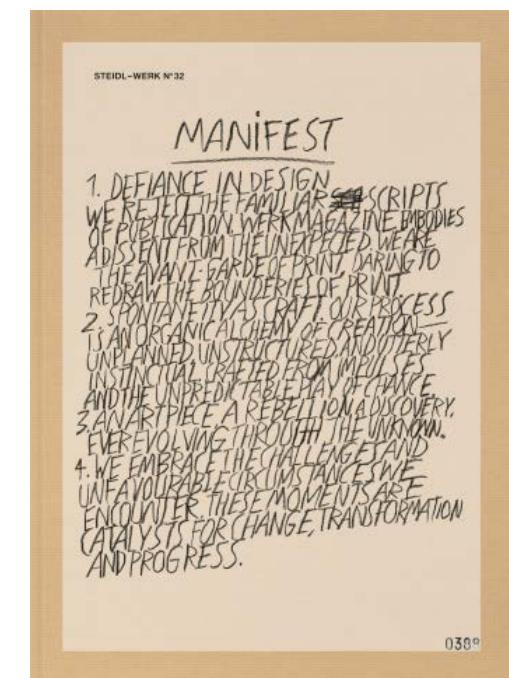 STEIDL–WERK Nº32
MANiFEST
1. DEFIANCE IN DESIGN
WE REJECT THE FAMILIAR SCRIPTS
OF PUBLICATION. WERK MAGAZINE EMBODIES
A DISSENT FROM THE UNEXPECTED. WE ARE
THE AVANT-GARDE OF PRINT, DARING TO
REDRAW THE BOUNDERIES OF PRINT
2. SPONTANEITY AS CRAFT. OUR PROCESS
IS AN ORGANIC ALCHEMY OF CREATION—
UNPLANNED, UNSTRUCTURED, AND UTTERLY
INSTINCTUAL, CRAFTED FROM IMPULSES
AND THE UNPREDICTABLE PLAY OF CHANCE.
3. AN ART PIECE A REBELLION, A DISCOVERY.
EVER EVOLVING THROUGH THE UNKNOWN.
4. WE EMBRACE THE CHALLENGES AND
UNFAVOURABLE CIRCUMSTANCES WE
ENCOUNTER. THESE MOMENTS ARE
CATALYSTS FOR CHANGE, TRANSFORMATION
AND PROGRESS.